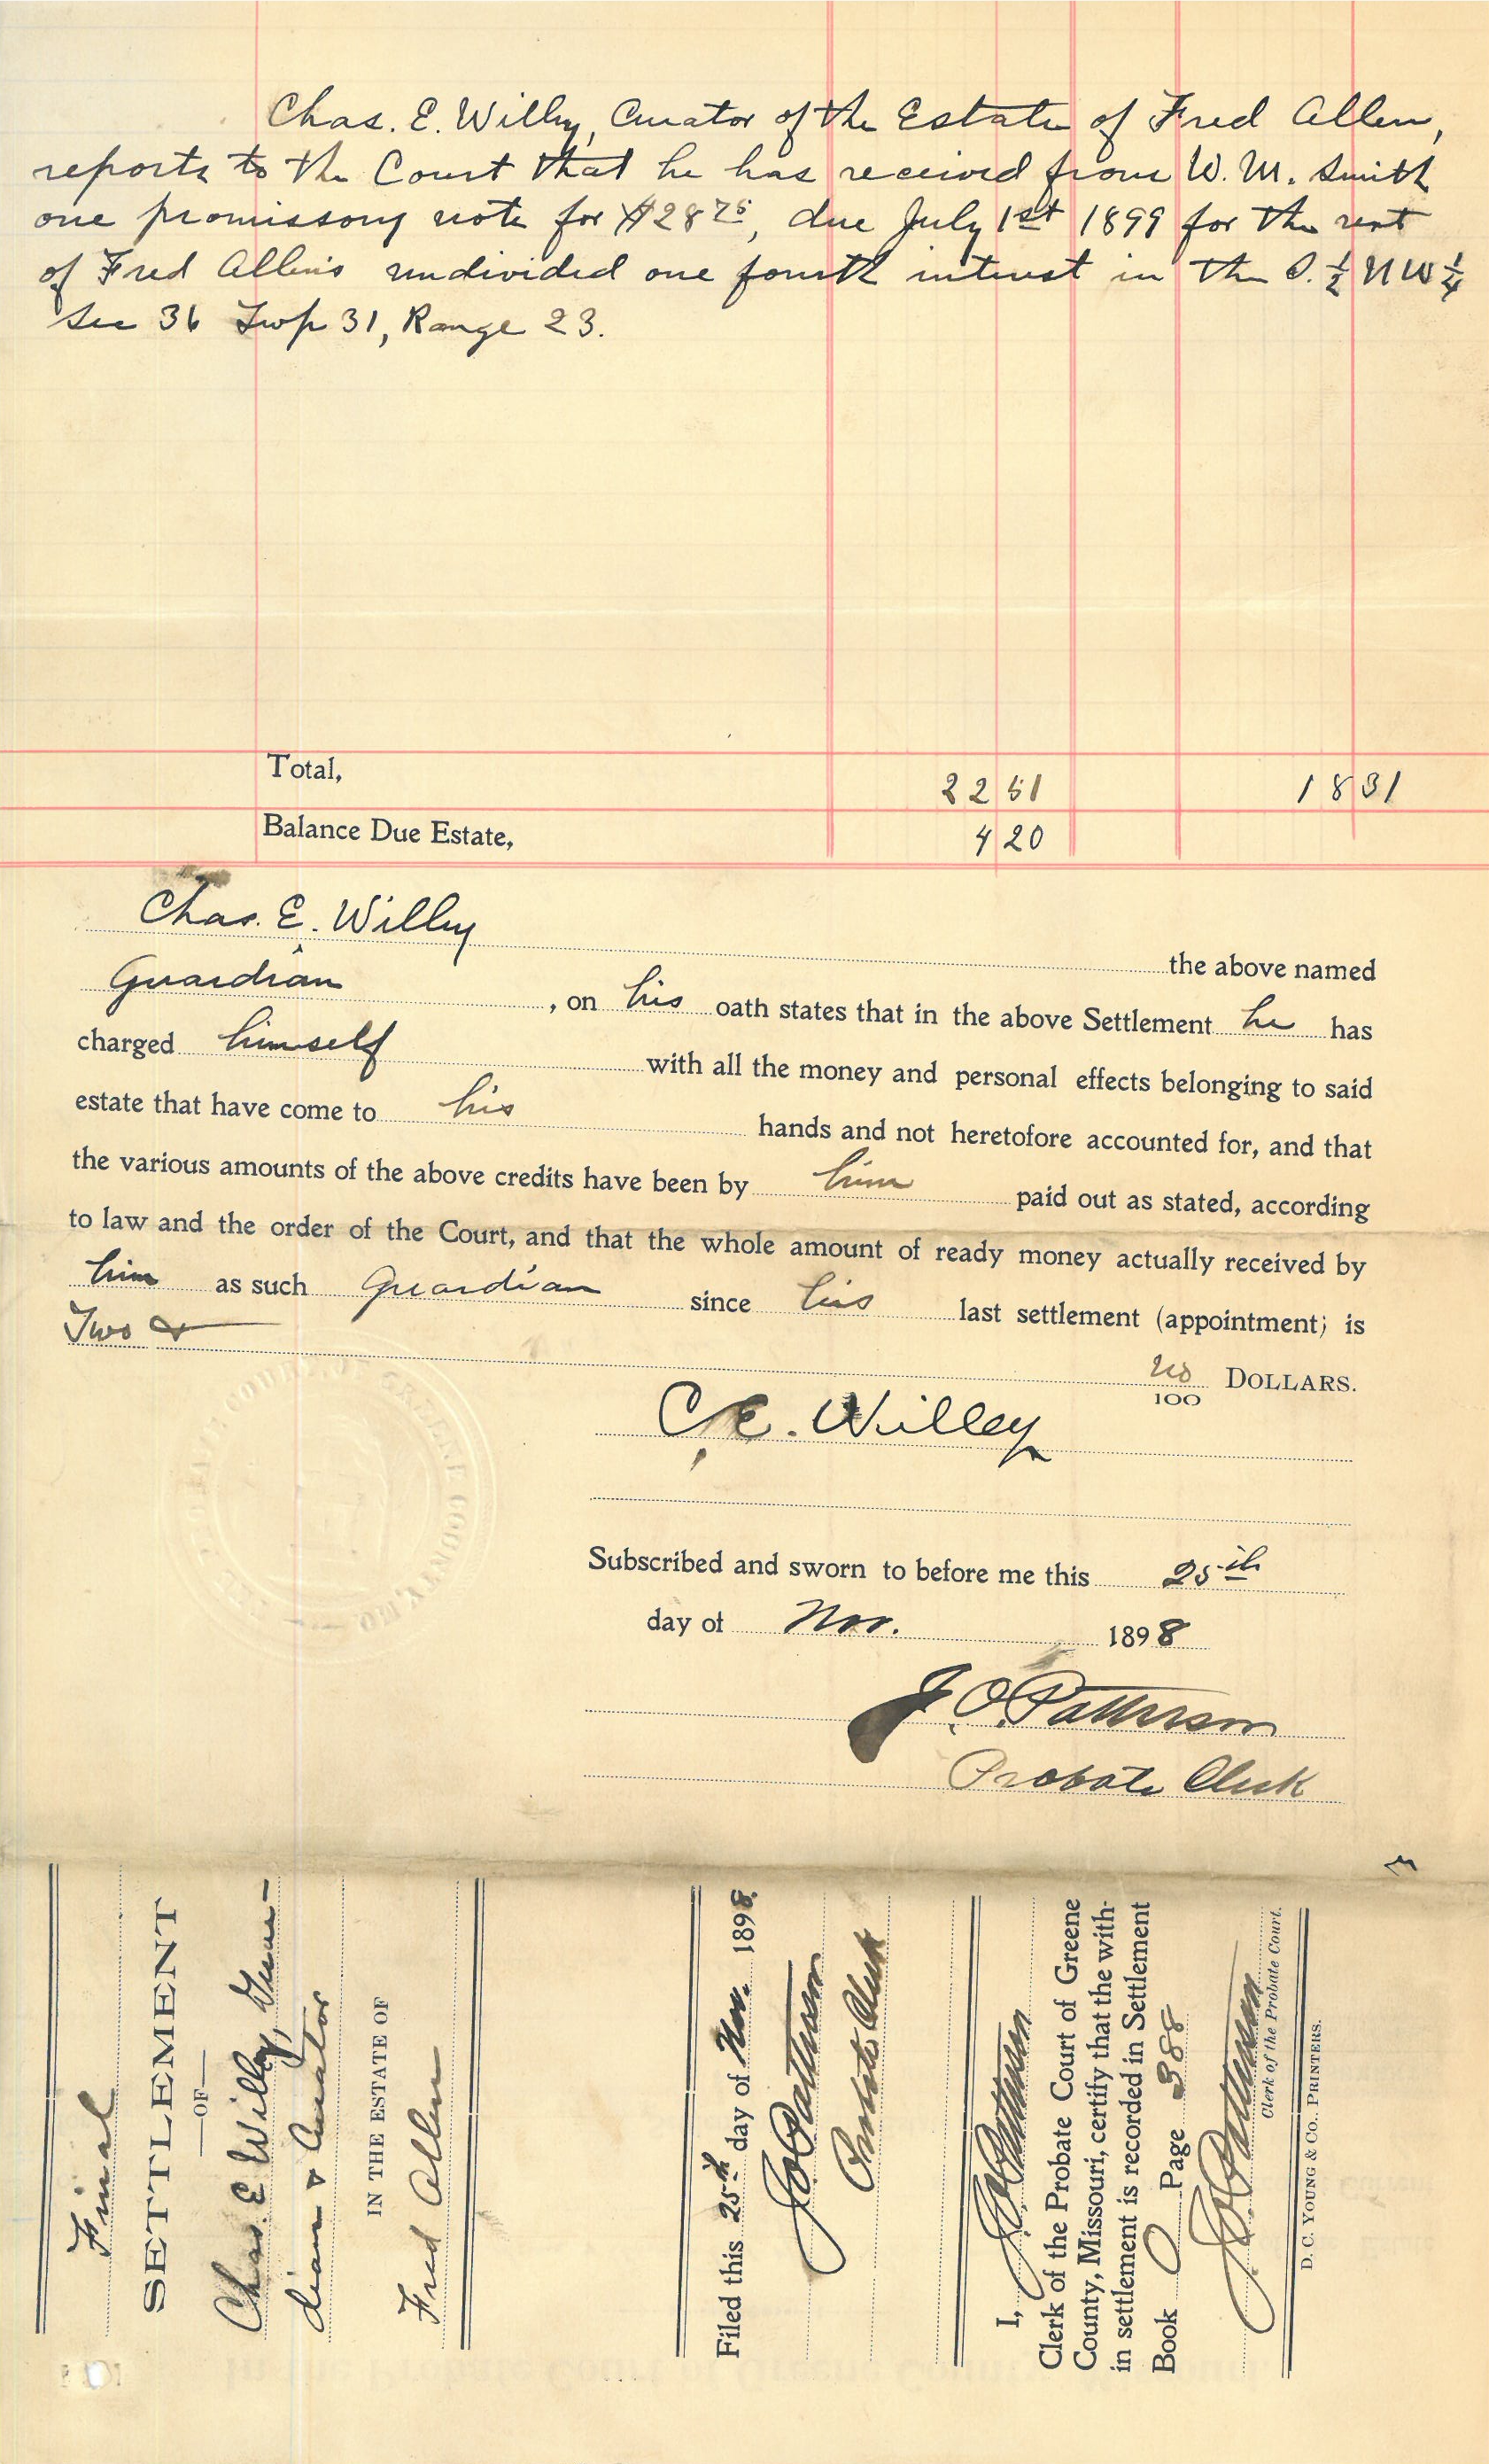 Chas. E. Willey, Curator of the Estate of Fred Allen,
reports to the Court that he has received from W. M. Smith
one promissory note for $28 75, due July 1st 1899 for the rent
of Fred Allen's undivided one fourth interest in the S. ½ NW ¼
Sec 36 Twp 31, Range 23.
Total, 22 51 18 31
Balance Due Estate, 4 20
Chas. E. Willey the above named
Guardian, on his oath states that in the above Settlement he has
charged himself with all the money and personal effects belonging to said
estate that have come to his hands and not heretofore accounted for, and that
the various amounts of the above credits have been by him paid out as stated, according
to law and the order of the Court, and that the whole amount of ready money actually received by
him as such Guardian since his last settlement (appointment) is
Two & no/100 DOLLARS.
C. E. Willey
Subscribed and sworn to before me this 25th
day of Nov. 1898
J. O. Patterson
Probate Clerk
Final
SETTLEMENT
—OF—
Chas. E. Willey, Guar-
dian & Curator
IN THE ESTATE OF
Fred Allen
Filed this 25th day of Nov. 1898.
J. O. Patterson
Probate Clerk
I, J. O. Patterson
Clerk of the Probate Court of Greene
County, Missouri, certify that the with-
in settlement is recorded in Settlement
Book O Page 388
J. O. Patterson
Clerk of the Probate Court.
D. C. YOUNG & CO., PRINTERS.